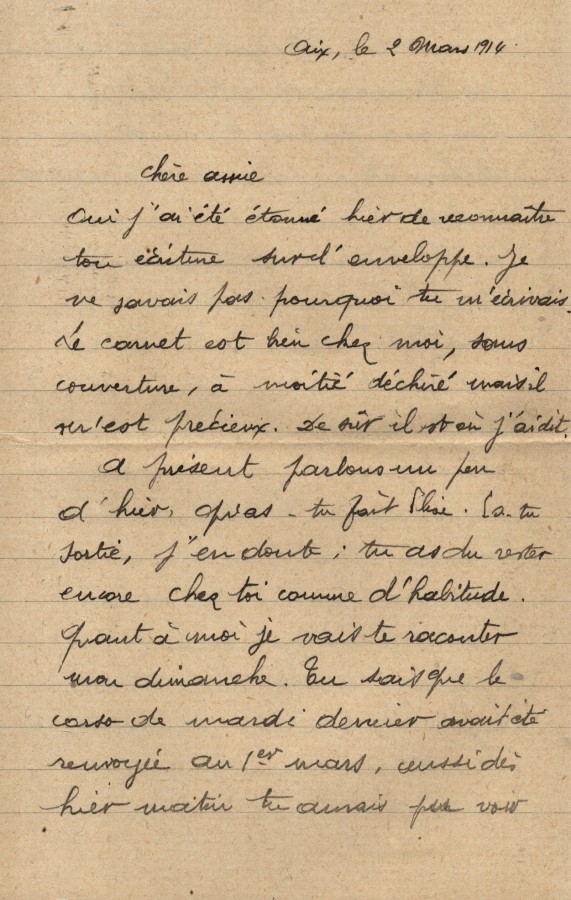 Aix, le 2 Mars 1914.
Chère amie
Oui j'ai été étonné hier de reconnaître
ton écriture sur l'enveloppe. Je
ne savais pas pourquoi tu m'écrivais.
Le carnet est bien chez moi, sans
couverture, à moitié déchiré mais il
m'est précieux. De sûr il est où j'ai dit.
A présent parlons un peu
d'hier, qu'as-tu fait Elise. Es-tu
sortie, j'en doute ; tu as du rester
encore chez toi comme d'habitude.
Quant à moi je vais te raconter
mon dimanche. Tu sais que le
corso de mardi dernier avait été
renvoyée au 1er mars, aussi dès
hier matin tu aurais pu voir